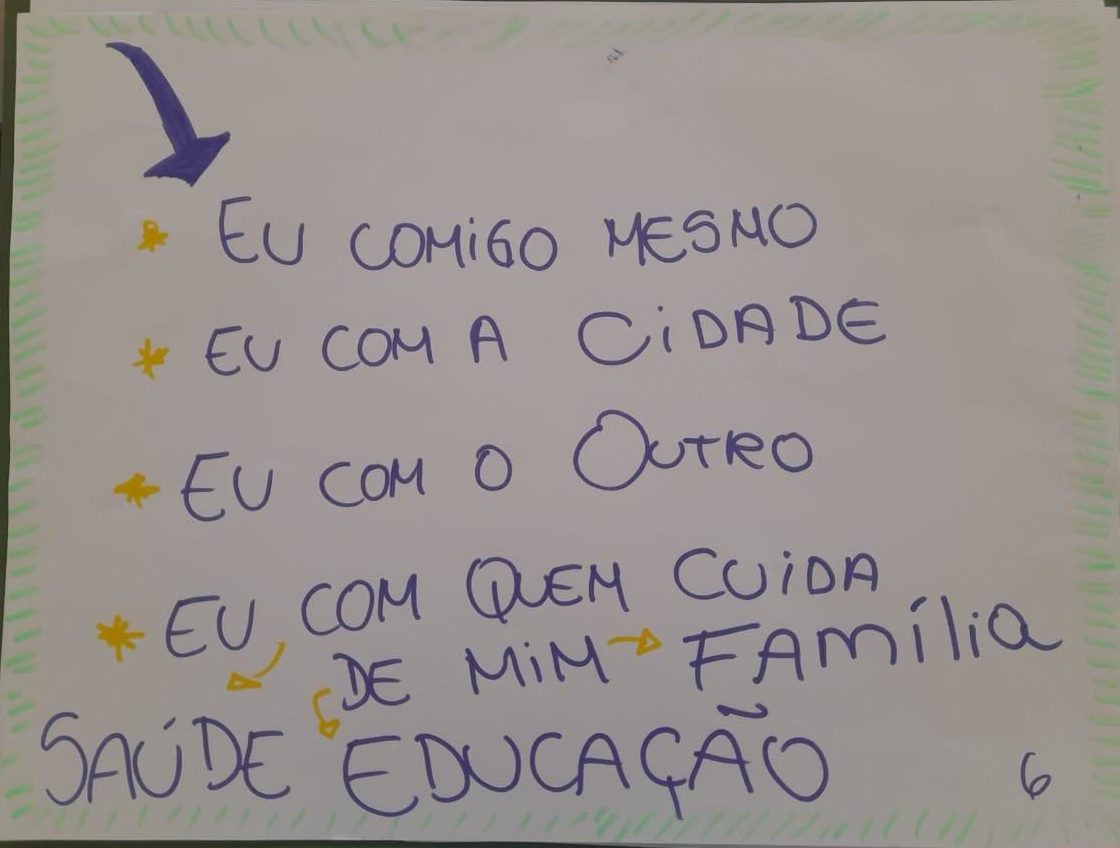 * EU COMIGO MESMO
* EU COM A CIDADE
* EU COM O OUTRO
* EU COM QUEM CUIDA
DE MIM → FAMÍLIA
SAÚDE EDUCAÇÃO
6